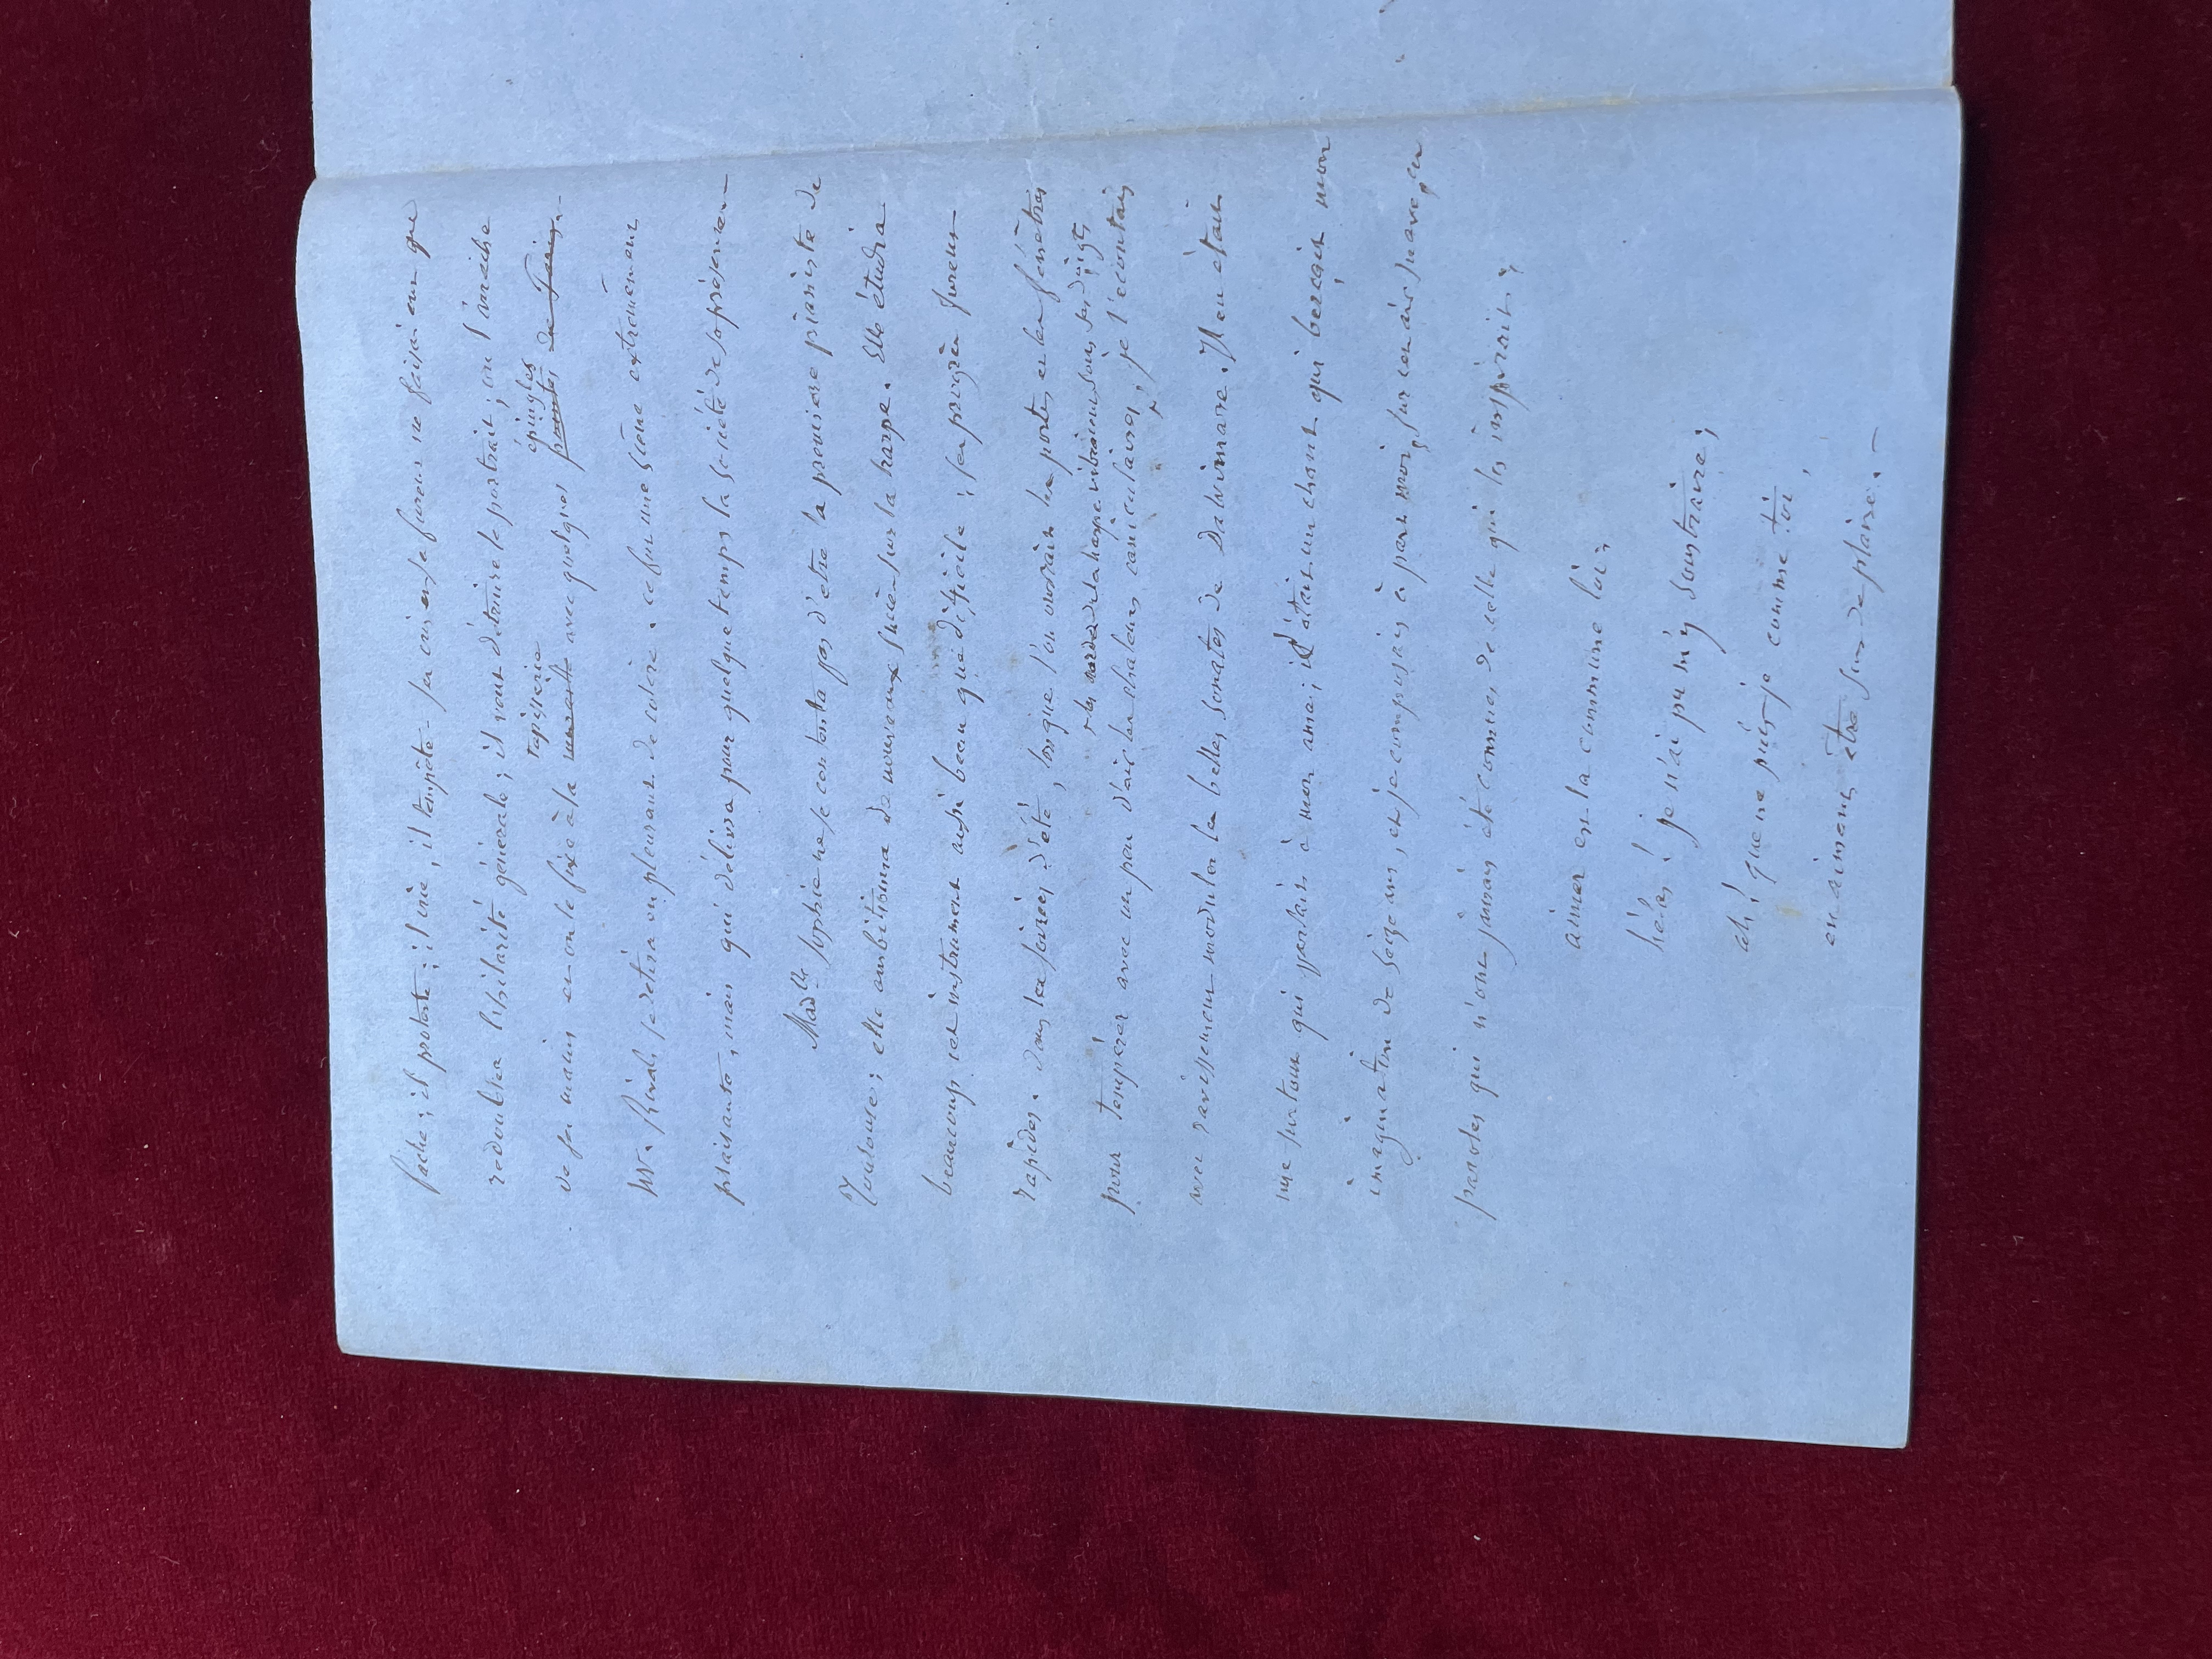 fâche; il proteste; il crie, il tempête. ses cris et sa fureur ne faisaient que
redoubler l'hilarité générale; il veut détruire le portrait; on l'arrache
tapisserie épingles
de ses mains et on le fixe à la muraille avec quelques pointes de Paris.
Mr. Rivals se retira en pleurant de colère. ce fut une scène extrêmement
plaisante, mais qui délivra pour quelque temps la société de sa présence.
Madlle Sophie ne se contenta pas d'être la première pianiste de
Toulouse; elle ambitionna de nouveaux succès sur la harpe. Elle étudia
beaucoup cet instrument aussi beau que difficile: ses progrès furent
rapides. dans les soirées d'été, lorsque l'on ouvrait les portes et les fenêtres
et les cordes de la harpe vibraient sous ses doigts,
pour tempérer avec un peu d'air les chaleurs caniculaires, je l'écoutais
avec ravissement moduler les belles sonates de Dalvimare. Il en était
une surtout qui parlait à mon âme; c'était un chant qui berçait mon
imagination de seize ans, et je composais à part moi, sur cet air suave, ces
paroles qui n'ont jamais été connues de celle qui les inspirait:
aimer est la commune loi;
hélas! je n'ai pu m'y soustraire;
ah! que ne puis-je comme toi,
en aimant, être sûr de plaire.